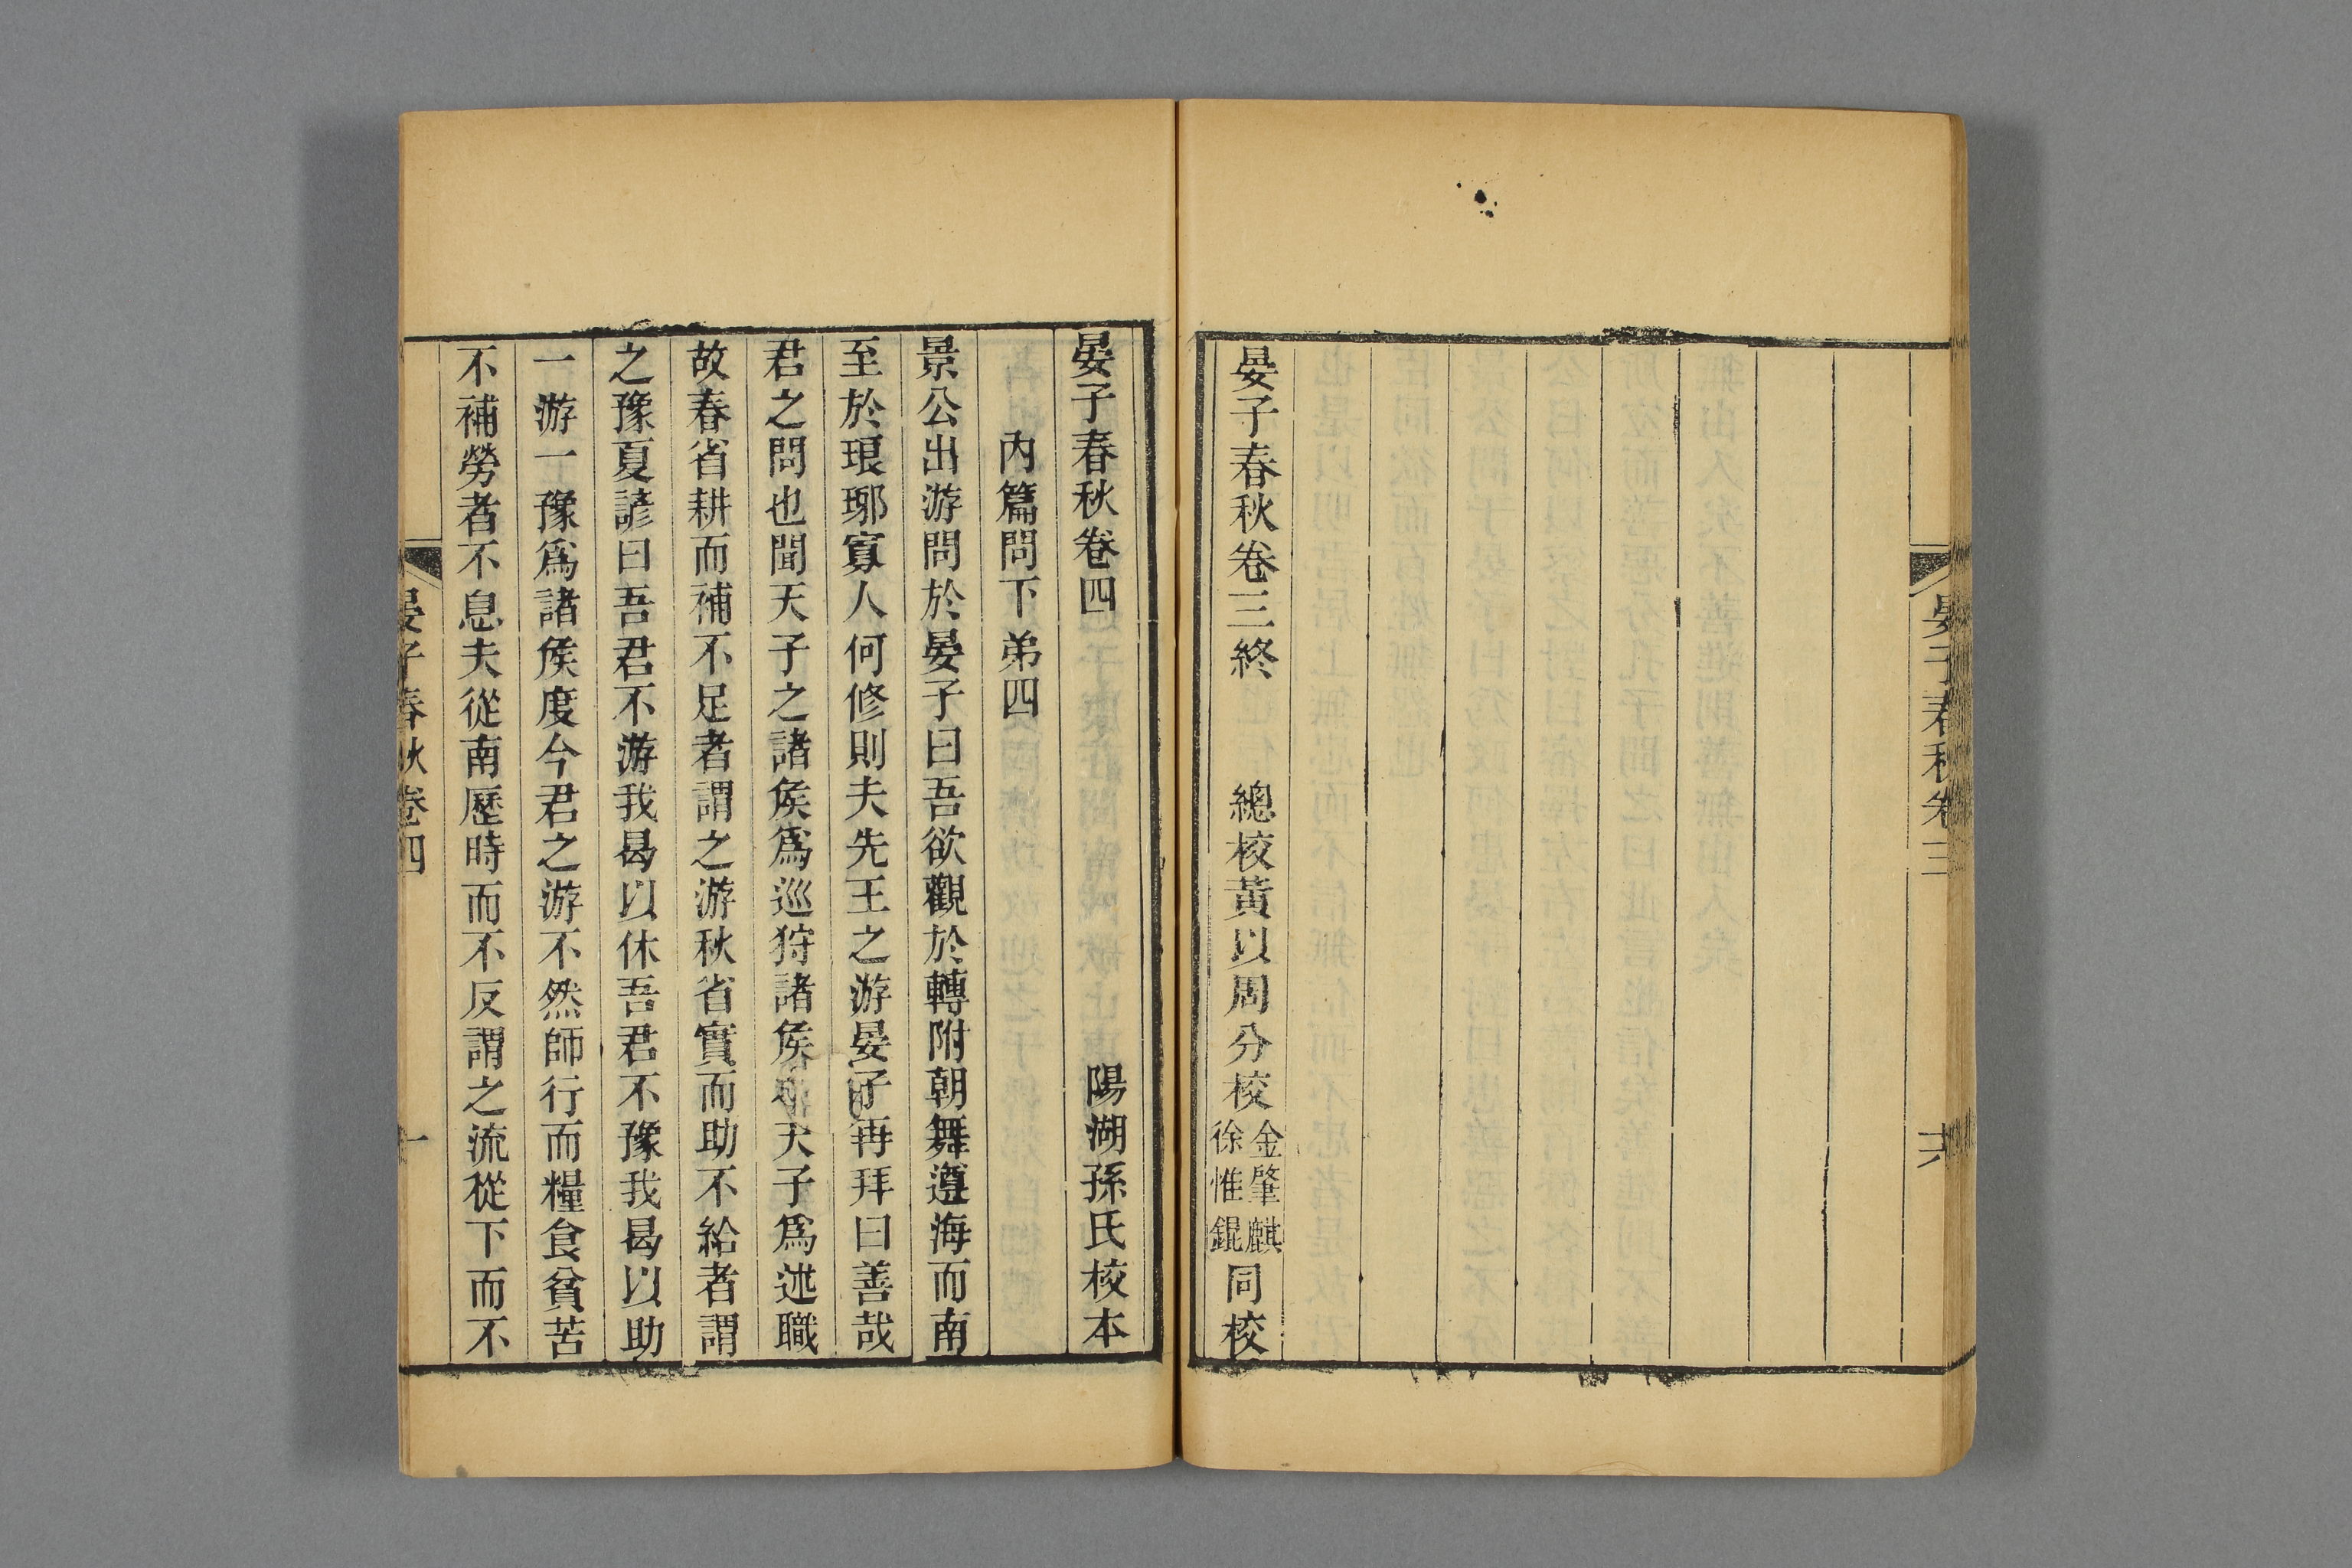 晏子春秋卷三
十六
晏子春秋卷三終 總校黃以周分校金肇麒徐惟錕同校
晏子春秋卷四 陽湖孫氏校本
內篇問下弟四
景公出游問於晏子曰吾欲觀於轉附朝舞遵海而南
至於琅琊寡人何修則夫先王之游晏子再拜曰善哉
君之問也聞天子之諸矦爲巡狩諸矦之天子爲述職
故春省耕而補不足者謂之游秋省實而助不給者謂
之豫夏諺曰吾君不游我曷以休吾君不豫我曷以助
一游一豫爲諸矦度今君之游不然師行而糧食貧苦
不補勞者不息夫從南歷時而不反謂之流從下而不
晏子春秋卷四
一